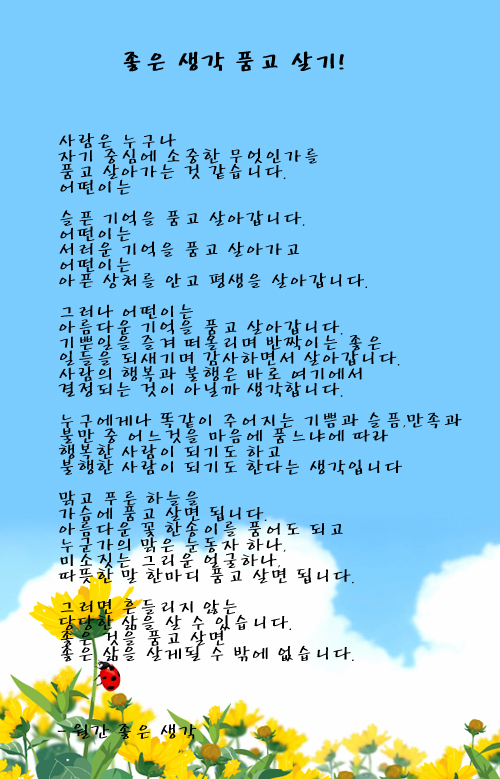 좋은 생각 품고 살기!
사람은 누구나
자기 중심에 소중한 무엇인가를
품고 살아가는 것 같습니다.
어떤이는
슬픈 기억을 품고 살아갑니다.
어떤이는
서러운 기억을 품고 살아가고
어떤이는
아픈 상처를 안고 평생을 살아갑니다.
그러나 어떤이는
아름다운 기억을 품고 살아갑니다.
기쁜일을 즐겨 떠올리며 반짝이는 좋은
일들을 되새기며 감사하면서 살아갑니다.
사람의 행복과 불행은 바로 여기에서
결정되는 것이 아닐까 생각합니다.
누구에게나 똑같이 주어지는 기쁨과 슬픔,만족과
불만 중 어느것을 마음에 품느냐에 따라
행복한 사람이 되기도 하고
불행한 사람이 되기도 한다는 생각입니다
맑고 푸른 하늘을
가슴에 품고 살면 됩니다.
아름다운 꽃 한송이를 품어도 되고
누군가의 맑은 눈동자 하나,
미소짓는 그리운 얼굴하나,
따뜻한 말 한마디 품고 살면 됩니다.
그러면 흔들리지 않는
당당한 삶을 살 수 있습니다.
좋은 것을 품고 살면
좋은 삶을 살게될 수 밖에 없습니다.
- 월간 좋은 생각